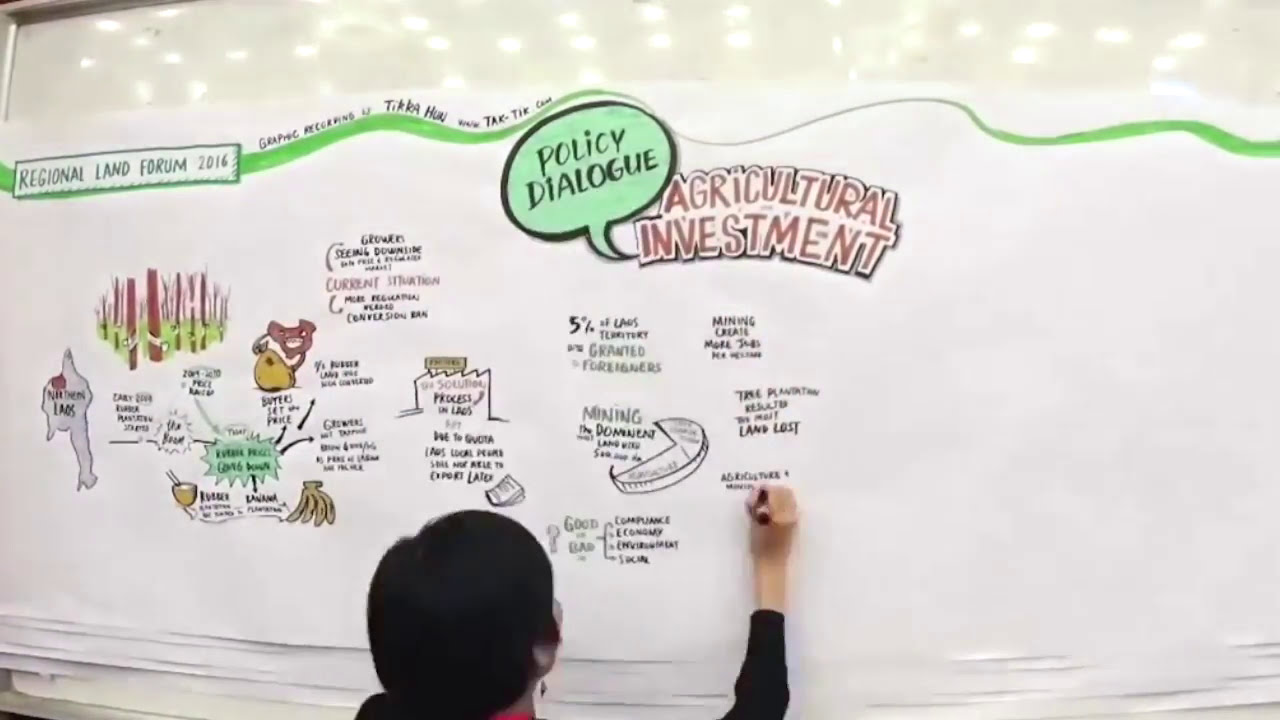 REGIONAL LAND FORUM 2016
GRAPHIC RECORDING by TiKKA HUN www.TAK-TiK.COM
POLiCY
DiALOGUE
AGRiCULTURAL
INVESTMENT
GROWERS
SEEING DOWNSIDE
CURRENT SITUATION
MORE REGULATION
NEEDED
CONVERSION BAN
NORTHERN
LAOS
EARLY
RUBBER
PLANTATION
STARTED
the
BOOM
PRICE
TODAY
RUBBER PRICES
GOING DOWN
BUYERS
SET the
PRICE
RUBBER
LAND
CONVERTED
GROWERS
NOT TAPPING
RUBBER
BANANA
PLANTATION
SOLUTION
PROCESS
IN LAOS
BUT
DUE TO QUOTA
LAOS LOCAL PEOPLE
STILL NOT ABLE TO
EXPORT LATEX
5% OF LAOS
TERRITORY
GRANTED
FOREIGNERS
MINING
CREATE
MORE JOBS
PER HECTARE
MINING
The DOMINENT
LAND USED
AGRICULTURE
TREE PLANTATION
RESULTED
The MOST
LAND LOST
AGRICULTURE &
? GOOD
or
BAD
COMPLIANCE
ECONOMY
ENVIRONMENT
SOCIAL